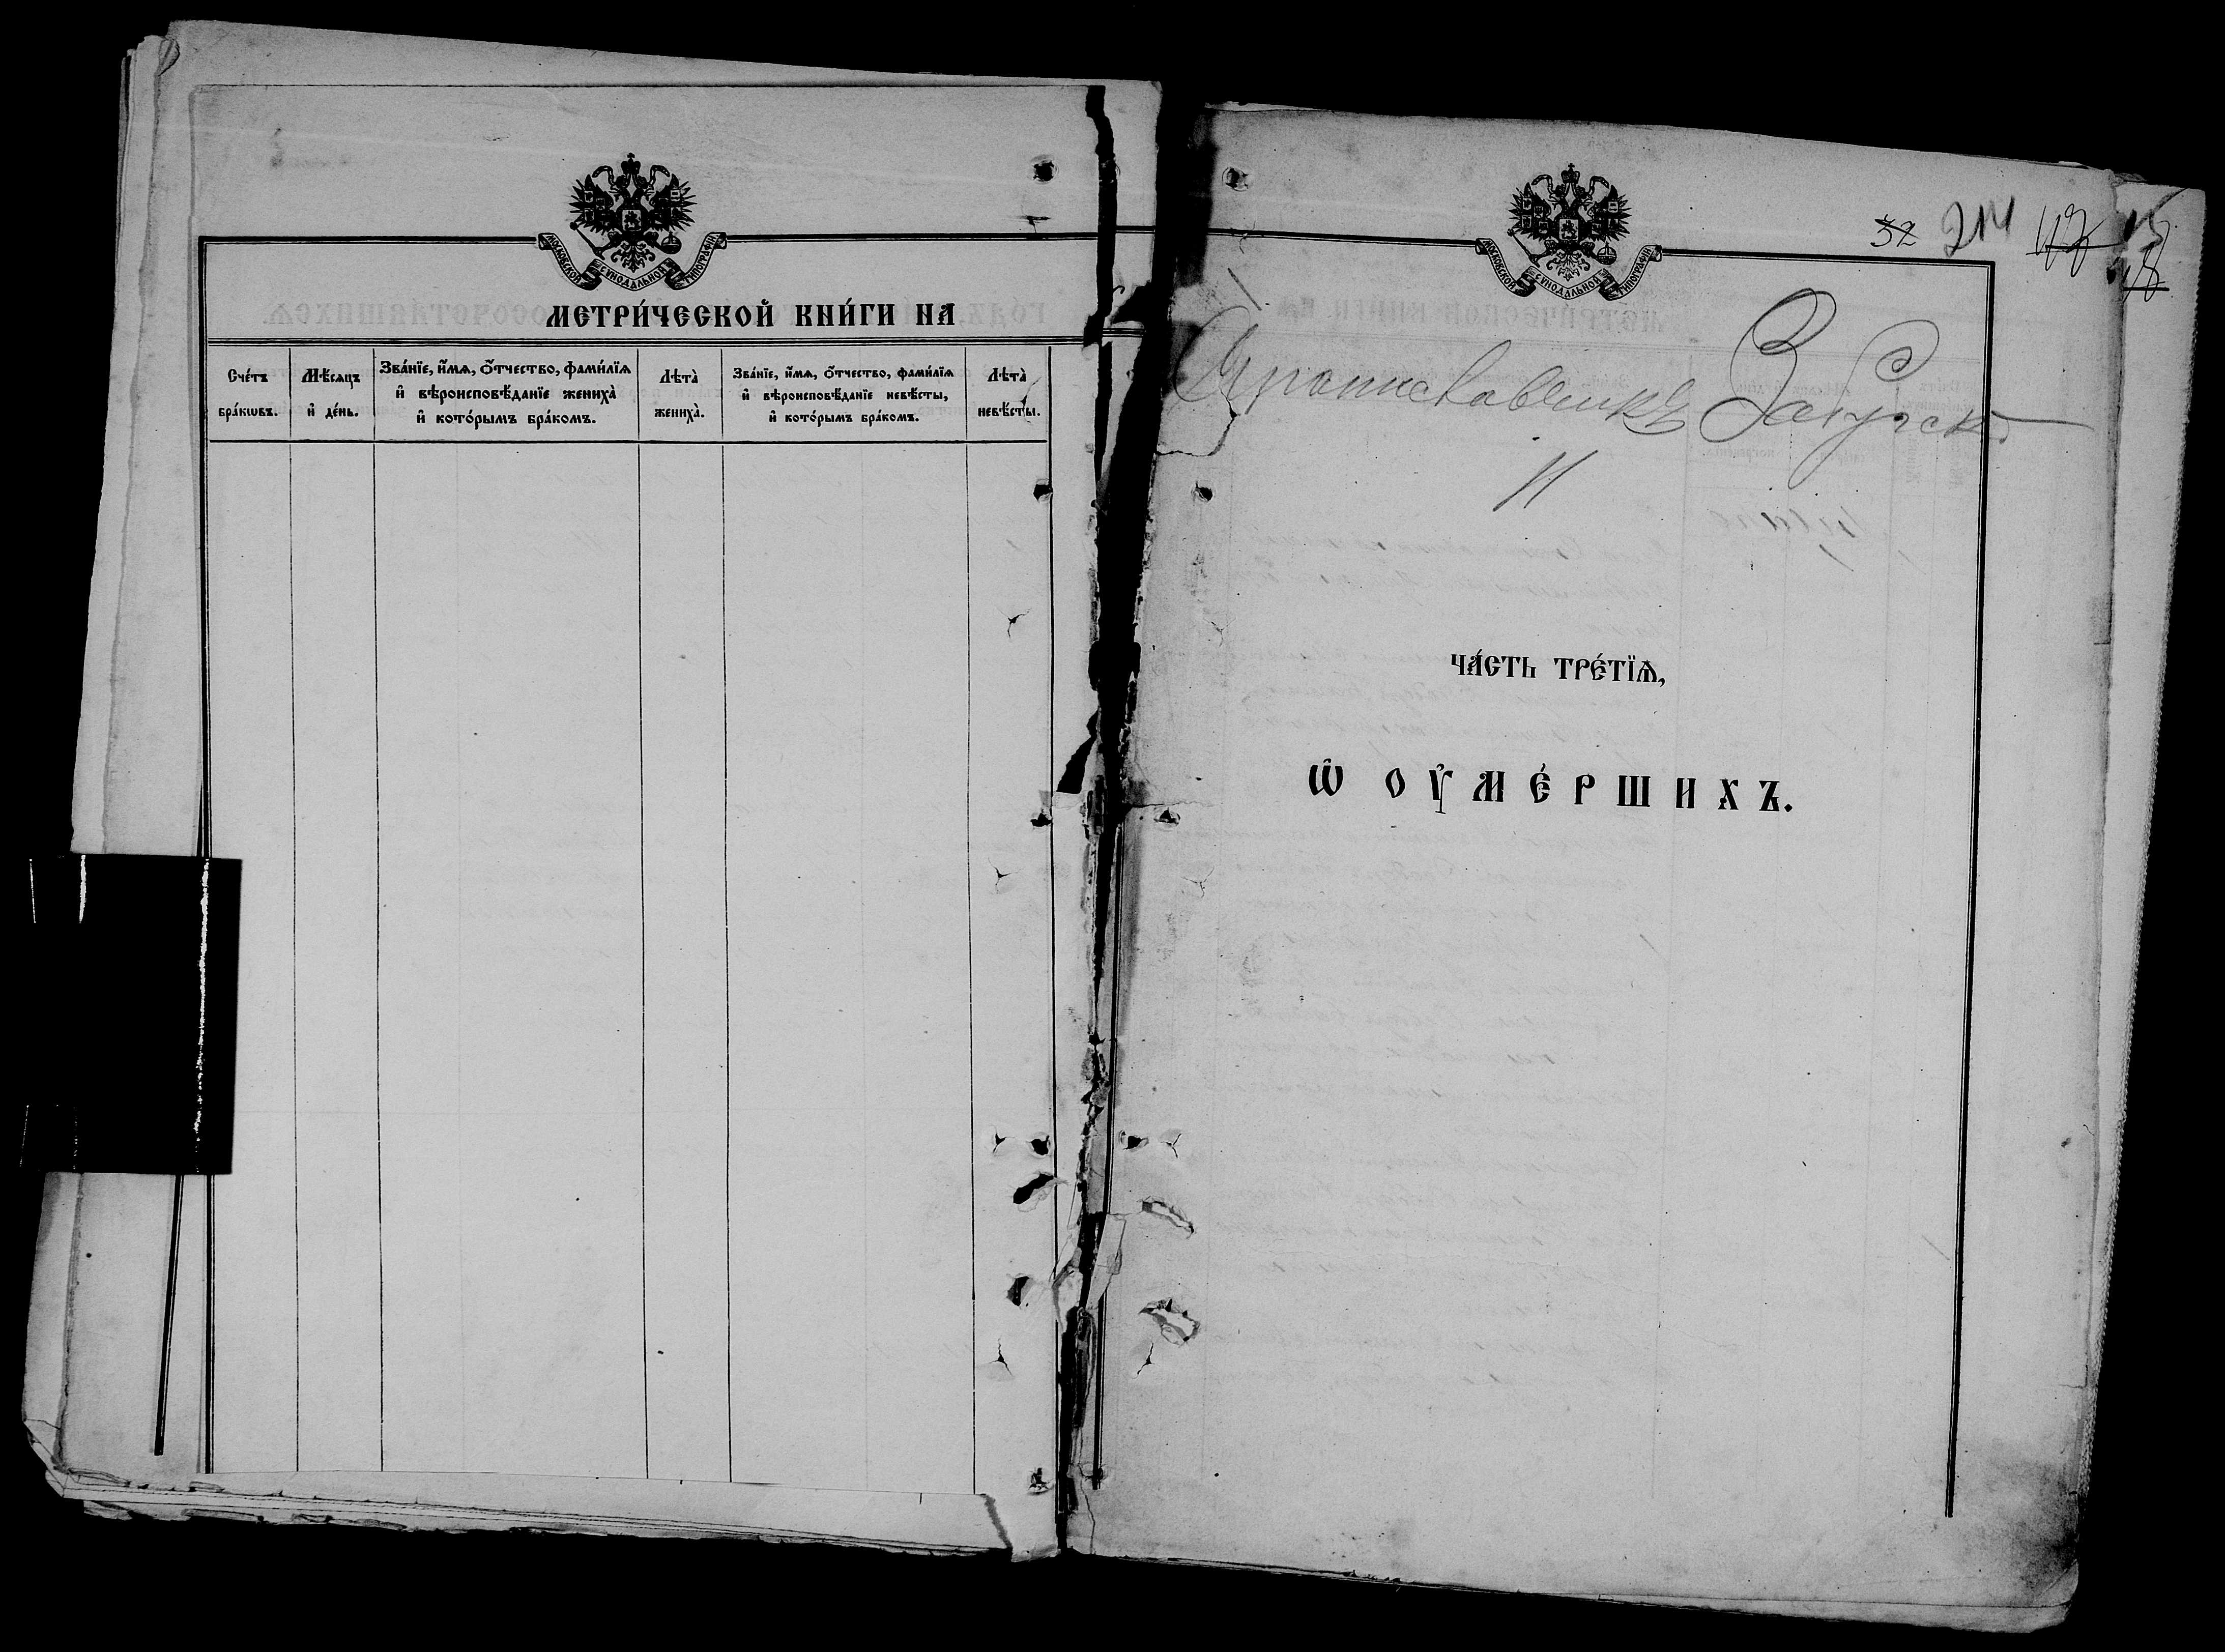 МОСКОВСКОЙ СѴНОДАЛЬНОЙ ТИПОГРАФІИ
МЕТРИ́ЧЕСКОЙ КНИ́ГИ НА
Сче́тъ бра́кѡвъ.
Мѣ́сяцъ и҆ де́нь.
Зва́нїе, и҆́мѧ, ѻ҆́тчество, фами́лїѧ
и҆ вѣроисповѣ́данїе жениха̀
и҆ кото́рымъ бра́комъ.
Лѣта̀ жениха̀.
Зва́нїе, и҆́мѧ, ѻ҆́тчество, фами́лїѧ
и҆ вѣроисповѣ́данїе невѣ́сты,
и҆ кото́рымъ бра́комъ.
Лѣта̀ невѣ́сты.
МОСКОВСКОЙ СѴНОДАЛЬНОЙ ТИПОГРАФІИ
32 214
ЧА́СТЬ ТРЕ́ТЇѦ,
Ѡ҆ ОУ҆МЕ́РШИХЪ.